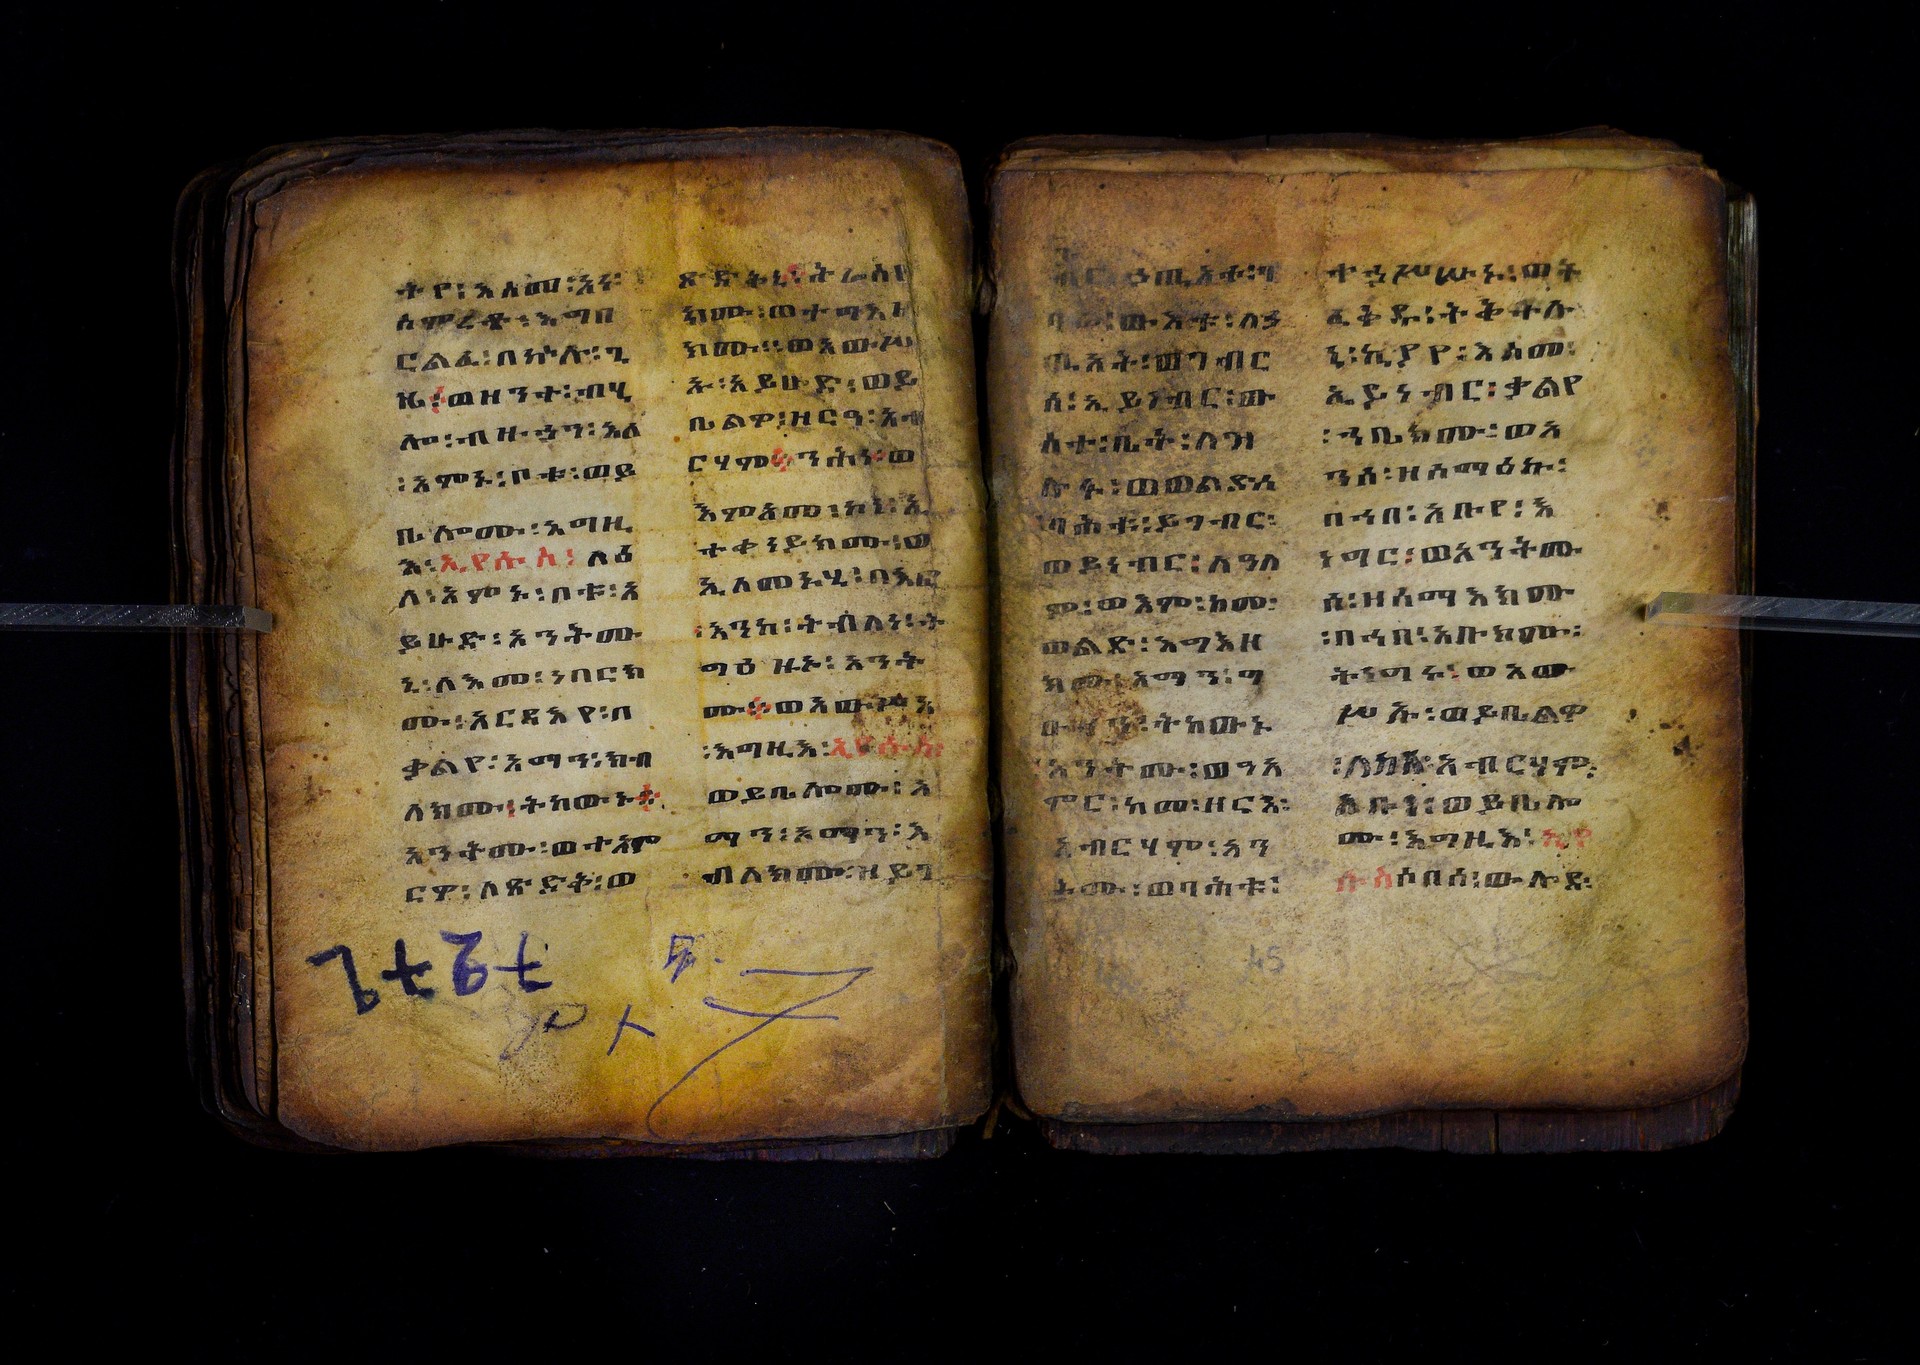 ትየ፡እስመ፡አነ፡
ሰምረቶ፡እግበ
ርልፈ፡በኵሉ፡ጊ
ዜ፡ወዘንተ፡ብሂ
ሎ፡ብዙኃን፡እለ
፡አምኑ፡ቦቱ፡ወይ
ቤሎሙ፡እግዚ
እ፡ኢየሱስ፡ለእ
ለ፡አምኑ፡በቱ፡አ
ይሁድ፡አንትሙ
ኒ፡ለእመ፡ነበርክ
ሙ፡አርዳእየ፡በ
ቃልየ፡አማን፡ክብ
ለክሙ፡ትከውኑ፨
አንትሙ፡ወተአም
ርዋ፡ለጽድቅ፡ወ
ጽድቅኒ፡ትሬስየ
ክሙ፡ወተግእዘ
ክሙ፡፡ወአውሥ
ኡ፡አይሁድ፡ወይ
ቤልዎ፡ዘርዓ፡አብ
ርሃም፨ንሕነ፡ወ
እምአመ፡ከነ፡ኢ
ተቀነይክሙ፡ወ
ኢለመኑሂ፡በእፎ
፡እንከ፡ትብለነ፡ት
ግዕዙኑ፡አንት
ሙ፨ወአውሥአ
፡እግዚእ፡ኢየሱስ፡
ወይቤሎሙ፡አ
ማን፡አማን፡እ
ብለክሙ፡ዝይገ
ብር፡ኃጢአተ፡ገ
ብሩ፡ውእቱ፡ለኃ
ጢአት፡ወገብር
ሰ፡ኢይነብር፡ው
ስተ፡ቤት፡ለዝ
ሉፉ፡ወወልድሰ
ባሕቱ፡ይገብር፡
ወይነብር፡ለዓለ
ም፡ወእም፡ከመ፡
ወልድ፡አግእዘ
ክሙ፡አማን፡ግ
ዑዛን፡ትከውኑ
አንትሙ፡ወዓአ
ምር፡ከመ፡ዘርእ፡
አብርሃም፡አን
ትሙ፡ወባሕቱ፡
ተኃሥሡኒ፡ወት
ፈቅዱ፡ትቅትሉ
ኒ፡ኪያየ፡እስመ፡
ኢይነብር፡ቃልየ
፡ኀቤክሙ፡ወአ
ንሰ፡ዘሰማዕኩ፡
በኀበ፡አቡየ፡እ
ነግር፡ወአንትሙ
ሰ፡ዘሰማእክሙ
፡በኀበ፡አቡክሙ፡
ትነግሩ፡ወአው
ሥኡ፡ወይቤልዎ
፡ለክሙ፡አብርሃም፡
አቡነ፡ወይቤሎ
ሙ፡እግዚእ፡ኢየ
ሱስሶበሰ፡ውሉደ፡
45